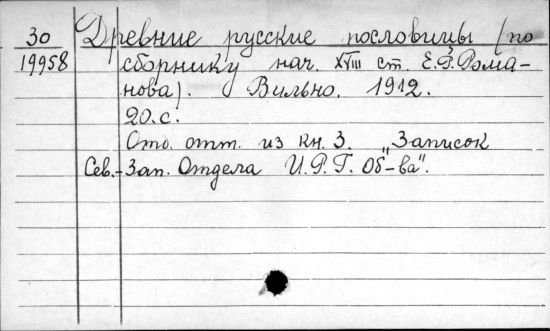 30 Древние русские пословицы (по
19958 сборнику нач. XVIII ст. Е.Р. Рома-
нова). Вильно. 1912.
20.с.
Отд. отт. из кн. 3. „Записок
Сев.-Зап. Отдела И.Р.Г. Об-ва".